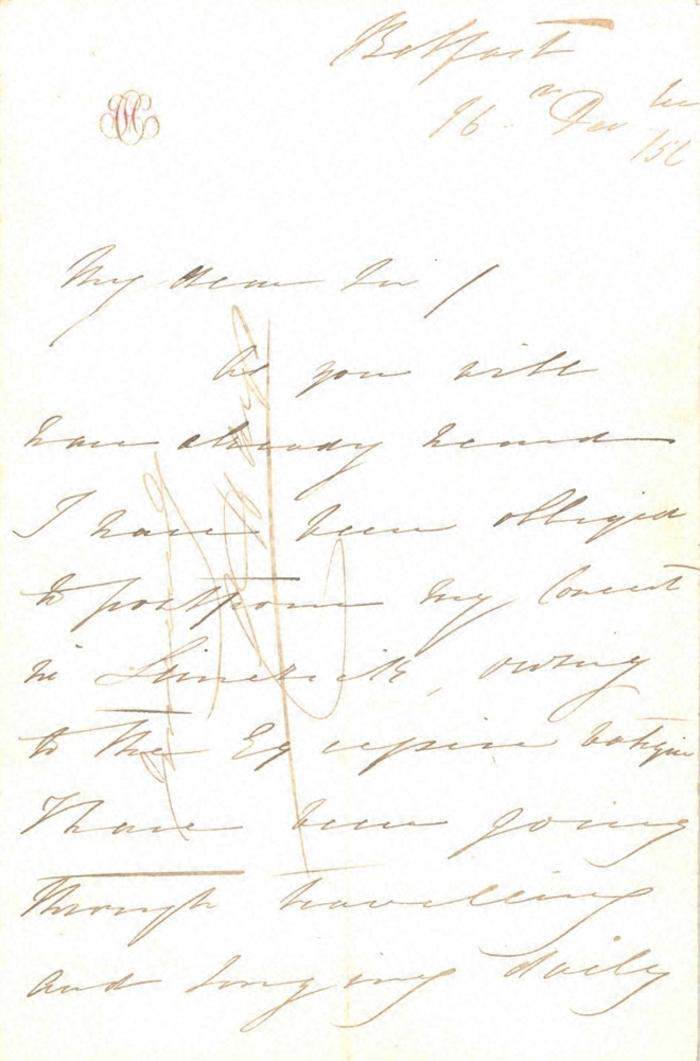 Belfast
My dear Sir /
As you will
have already heard
I have been obliged
to postpone my Concert
in Limerick, owing
to the Excessive fatigue
I have been going
through travelling
and singing daily